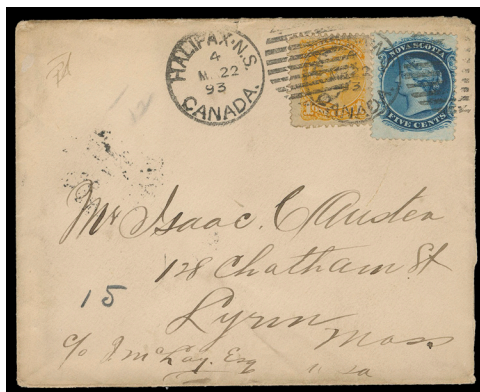 HALIFAX·N.S.
4
M. 22
93
CANADA.
NOVA SCOTIA
FIVE CENTS
Mr Isaac C Austen
128 Chatham St
15
Lynn
Mass.
c/o
Esq